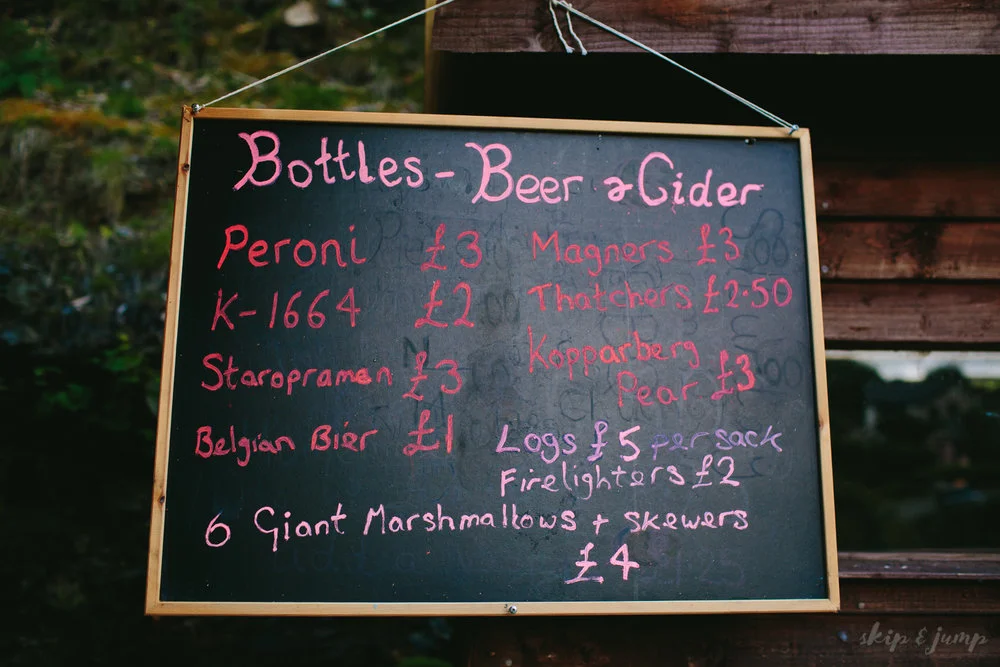 Bottles - Beer & Cider
Peroni £3
K-1664 £2
Staropramen £3
Belgian Bier £1
Magners £3
Thatchers £2.50
Kopparberg
Pear £3
Logs £5 per sack
Firelighters £2
6 Giant Marshmallows + skewers
£4
skip & jump